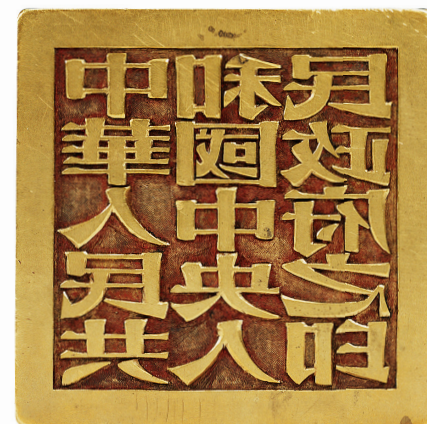 中華人民共
和國中央人
民政府之印